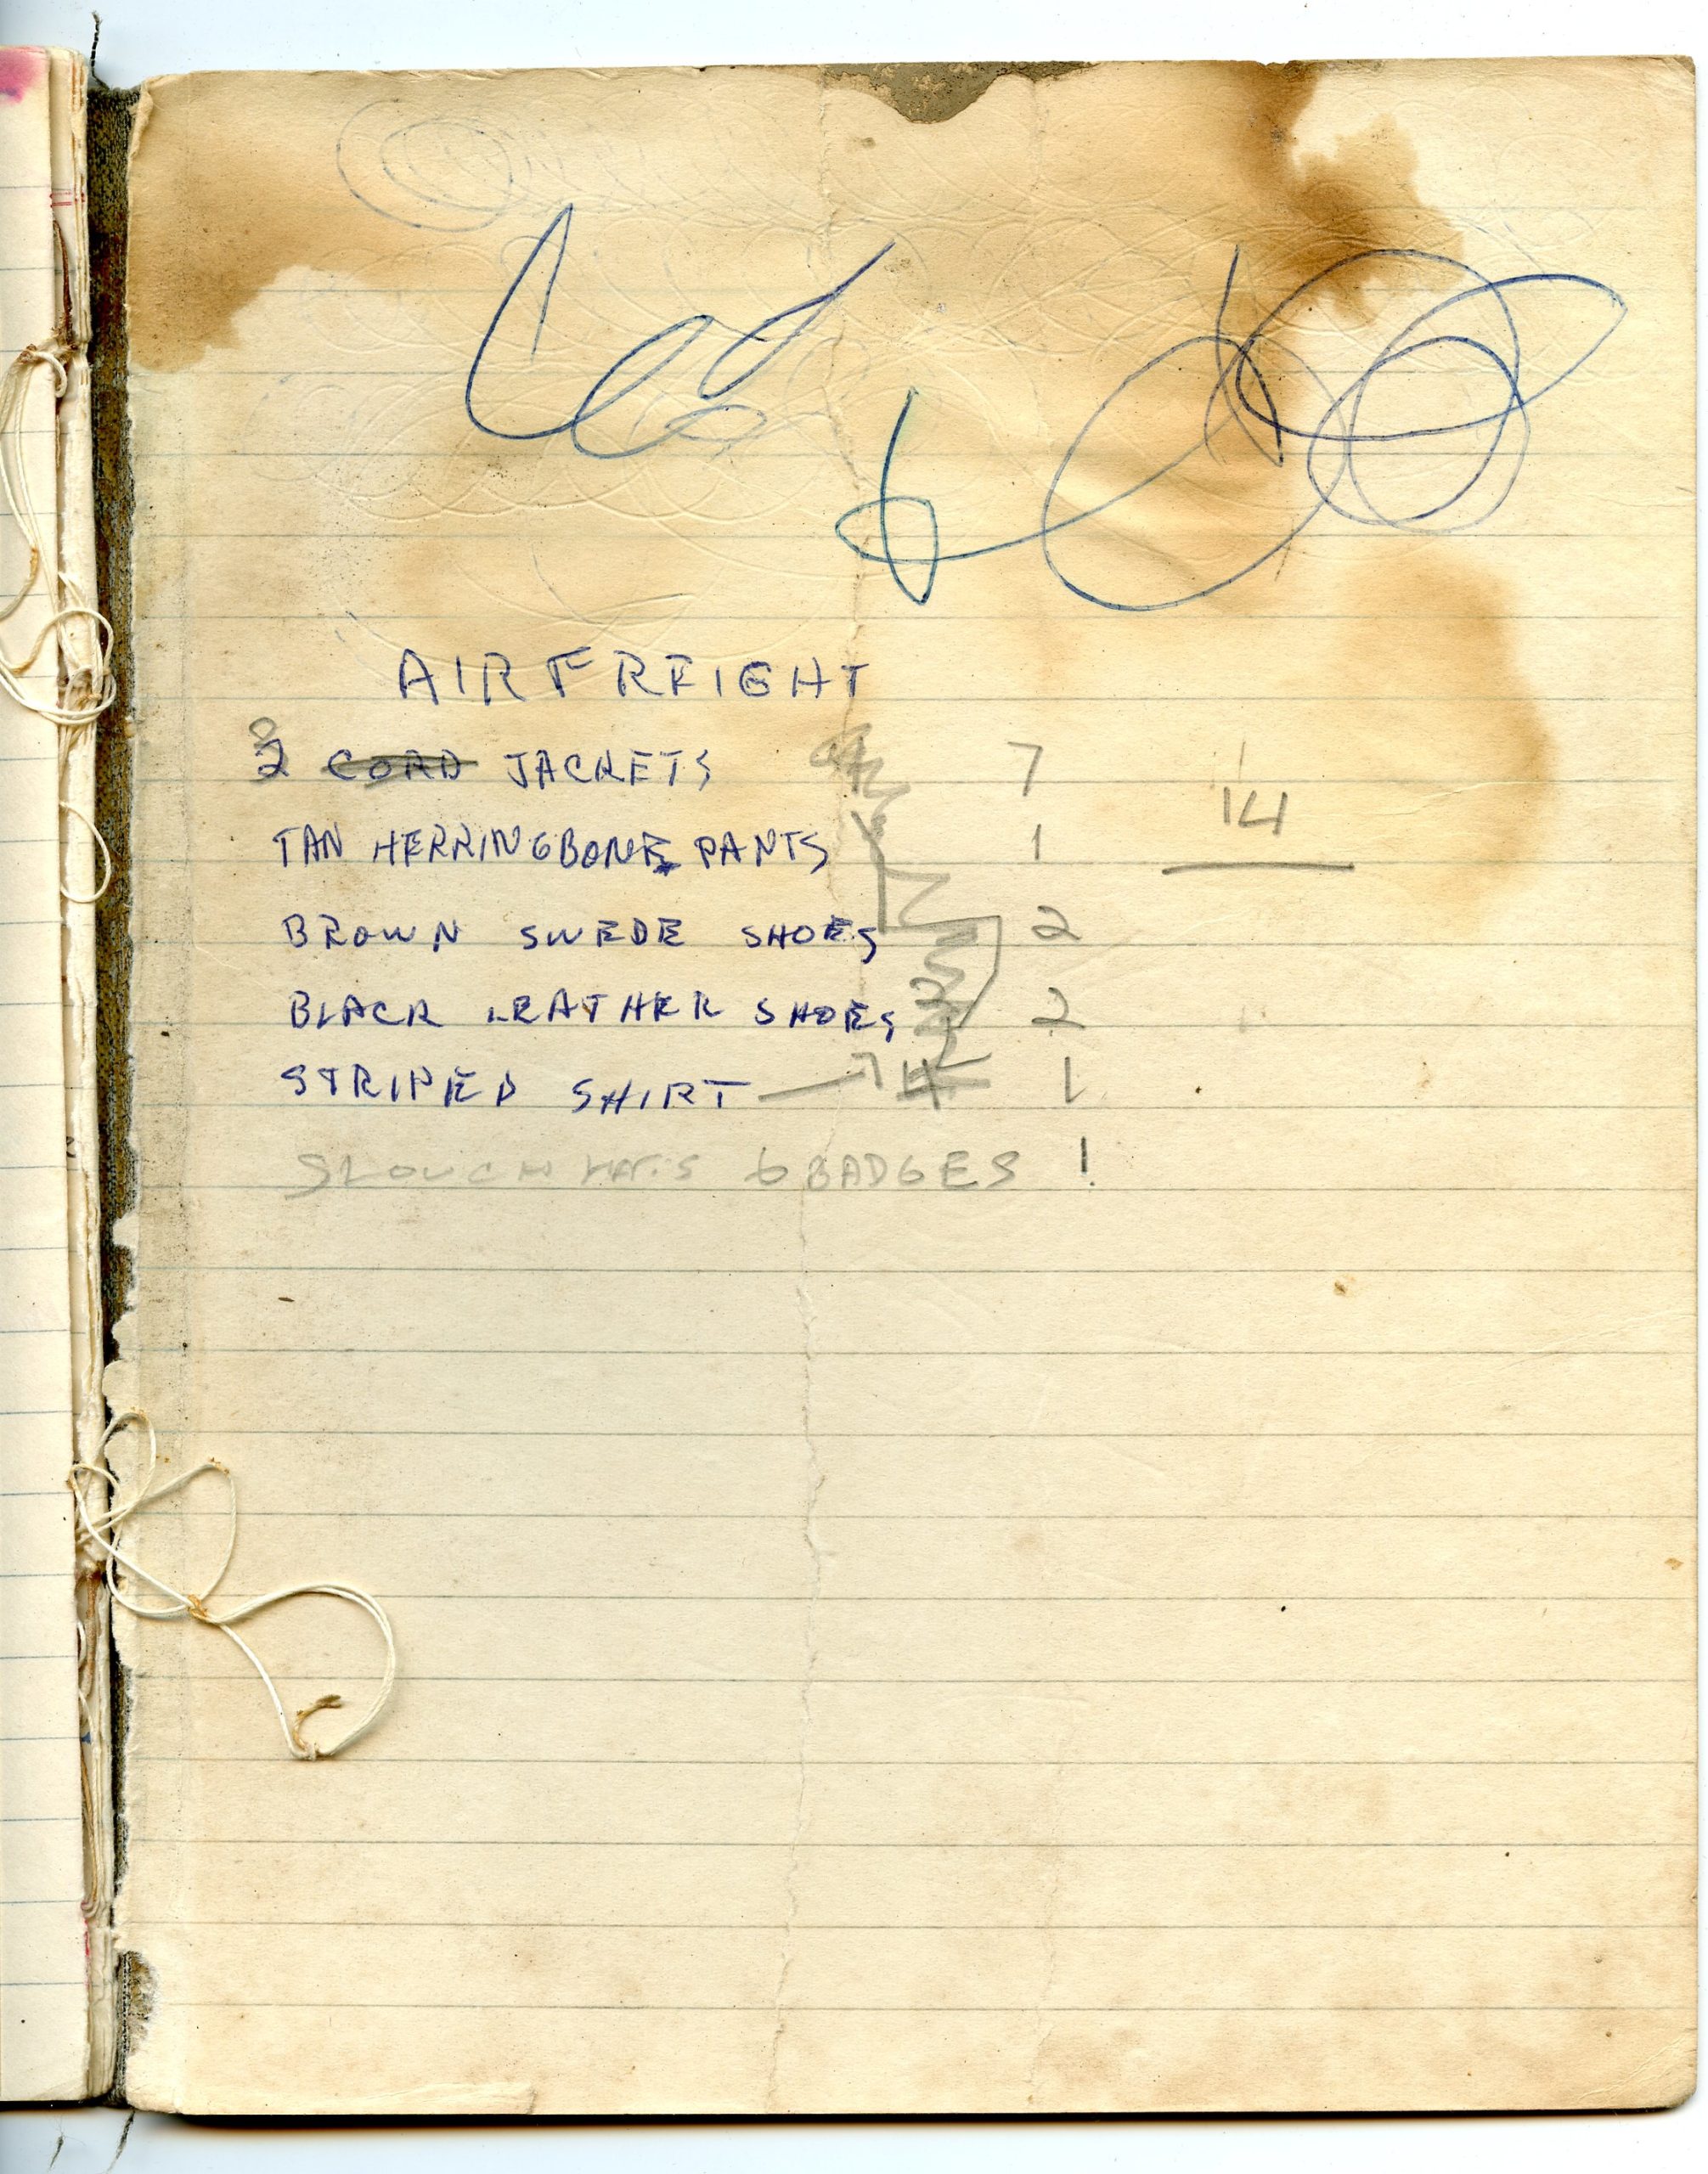 AIRFREIGHT
2 CORD JACKETS 7
14
TAN HERRINGBONE PANTS 1
BROWN SWEDE SHOES 2
BLACK LEATHER SHOES 2
STRIPED SHIRT — 7 1
SLOUCH HATS 6 BADGES 1